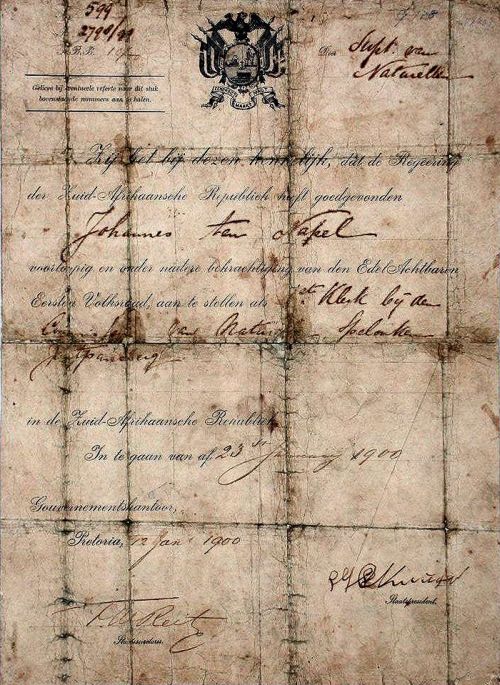 599
2790/99
B.B.
Door Supt. van
Naturellen
Gelieve bij eventueele referte naar dit stuk
bovenstaande nummers aan te halen.
EENDRAGT MAAKT MAGT
Zij het bij dezen kennelijk, dat de Regeering
der Zuid-Afrikaansche Republiek heeft goedgevonden
Johannes ten Napel
voorloopig en onder nadere bekrachtiging van den EdelAchtbaren
Eersten Volksraad, aan te stellen als 1ste Klerk bij den
van Spelonken
in de Zuid-Afrikaansche Republiek
In te gaan van af 23st January 1900
Gouvernementskantoor,
Pretoria, 12 Jan 1900
Staatspresident.
F.W. Reitz
Staatssecretaris.